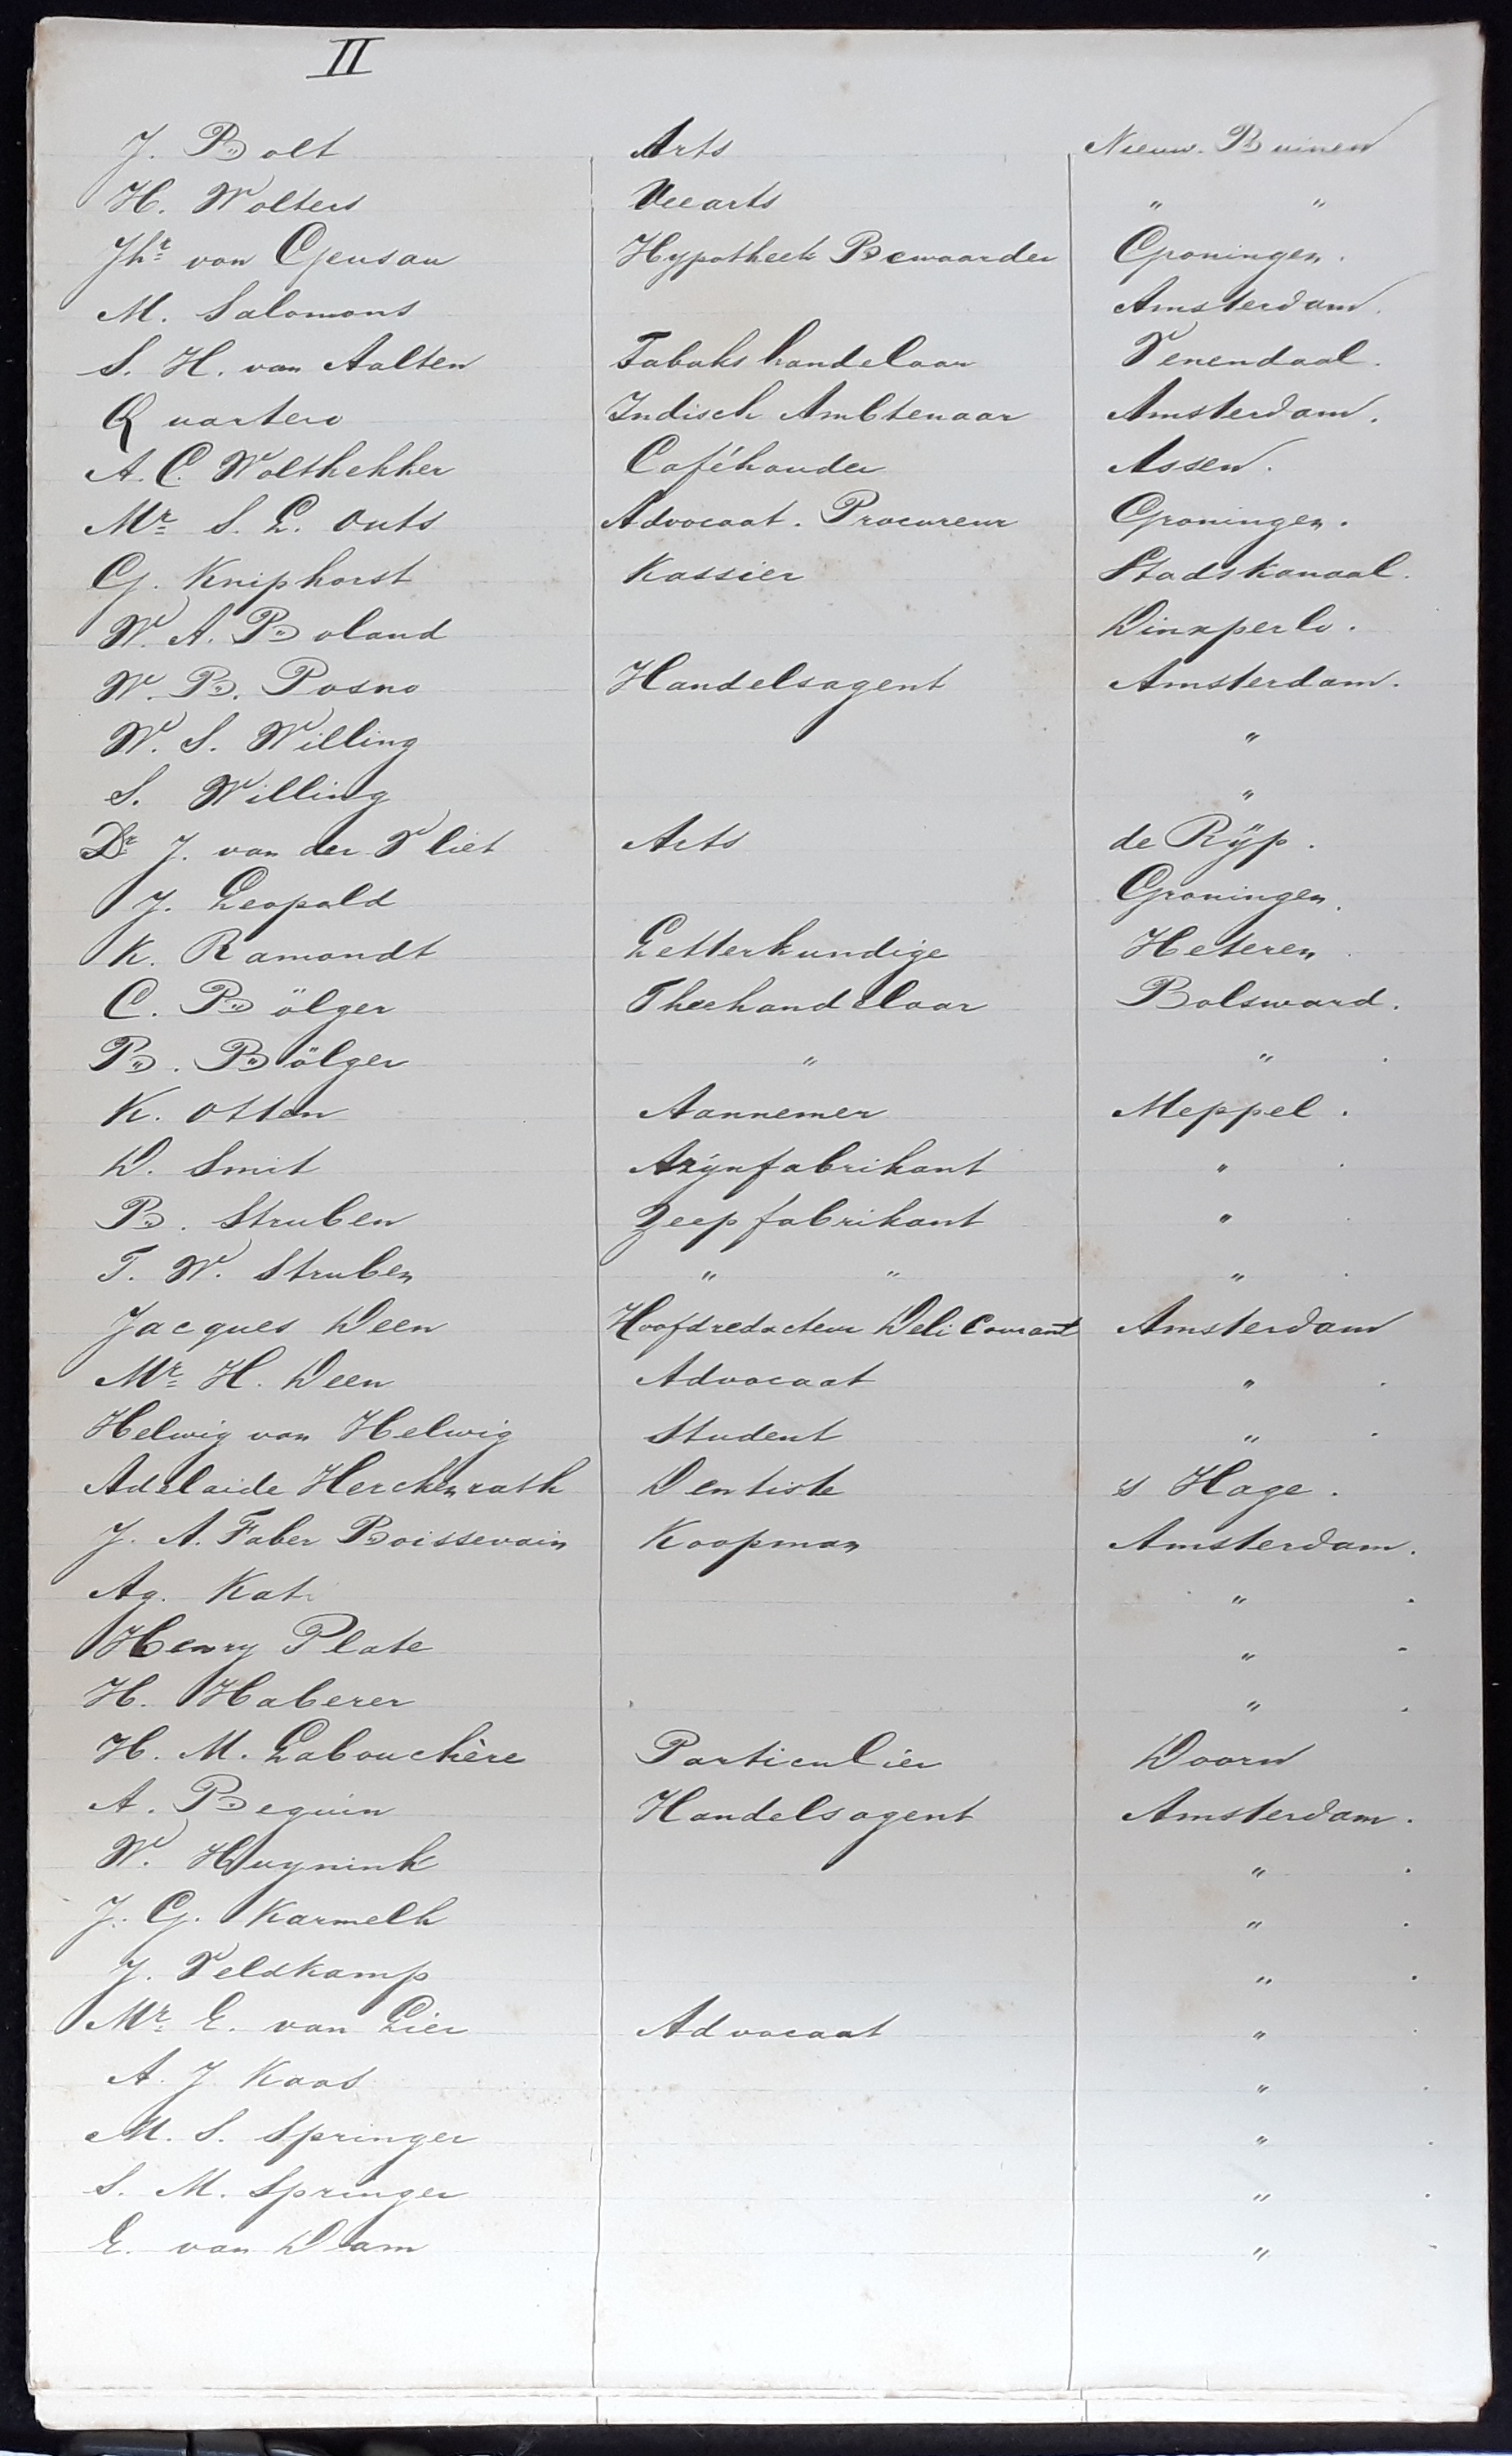 II
J. Bolt Arts Nieuw. Buinen
H. Wolters Veearts " "
Jhr van Geusau Hypotheek Bewaarder Groningen.
M. Salomons Amsterdam.
S. H. van Aalten Tabakshandelaar Venendaal.
Quartero Indisch Ambtenaar Amsterdam.
A. C. Wolthekker Caféhouder Assen.
Mr S. L. Outs Advocaat. Procureur Groningen.
G. Kniphorst Kassier Stadskanaal.
W. A. Boland Dinxperlo.
W. B. Posno Handelsagent Amsterdam.
W. S. Willing "
S. Willing "
Dr J. van der Vliet Arts de Rÿp.
J. Leopold Groningen.
K. Ramondt Letterkundige Heteren.
C. Bölger Theehandelaar Bolsward.
B. Bölger " " .
K. Otten Aannemer Meppel.
D. Smit Azÿnfabrikant " .
B. Struben Zeepfabrikant " .
T. W. Struben " " " .
Jacques Deen Hoofdredacteur Deli Courant Amsterdam
Mr H. Deen Advocaat " .
Helwig van Helwig Student " .
Adelaide Herckenrath Dentiste s Hage.
J. A. Faber Boissevain Koopman Amsterdam.
Ag. Kat. " .
Henry Plate " -
H. Haberer " .
H. M. Labouchère Particulier Doorn
A. Beguin Handelsagent Amsterdam.
W. Huynink " .
J. G. Karmelk " .
J. Veldkamp " .
Mr E. van Lier Advocaat " .
A. J. Kaas " .
M. S. Springer " .
S. M. Springer " .
E. van Dam " -